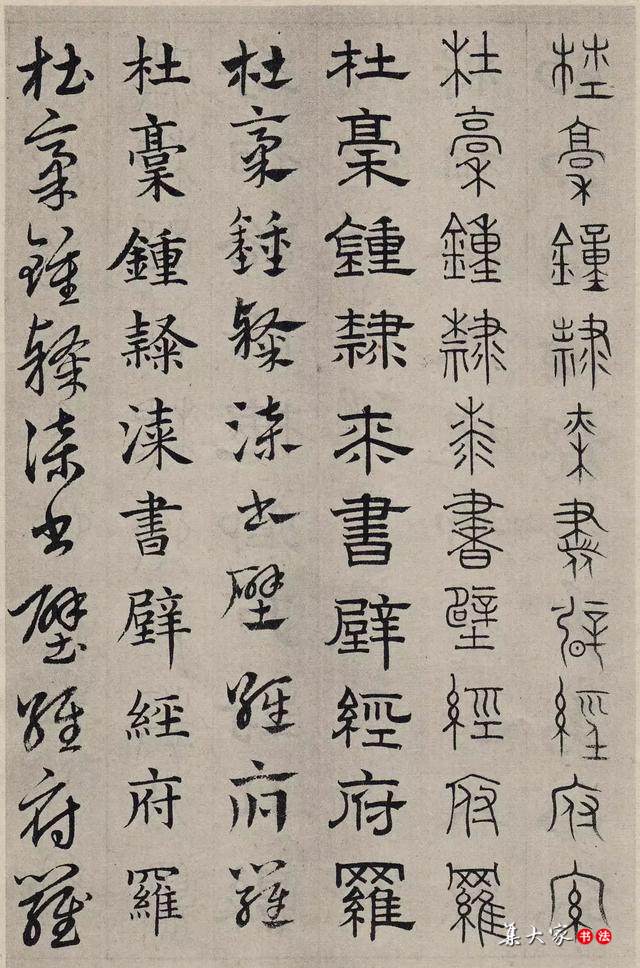 杜稾鐘隸桼書壁經府羅
杜稾鍾隸桼書壁經府羅
杜稾鍾隸桼書壁經府羅
杜稾鍾隸漆書壁經府羅
杜稾鍾隸漆書壁經府羅
杜稾鍾隸漆書壁經府羅
集大家书法